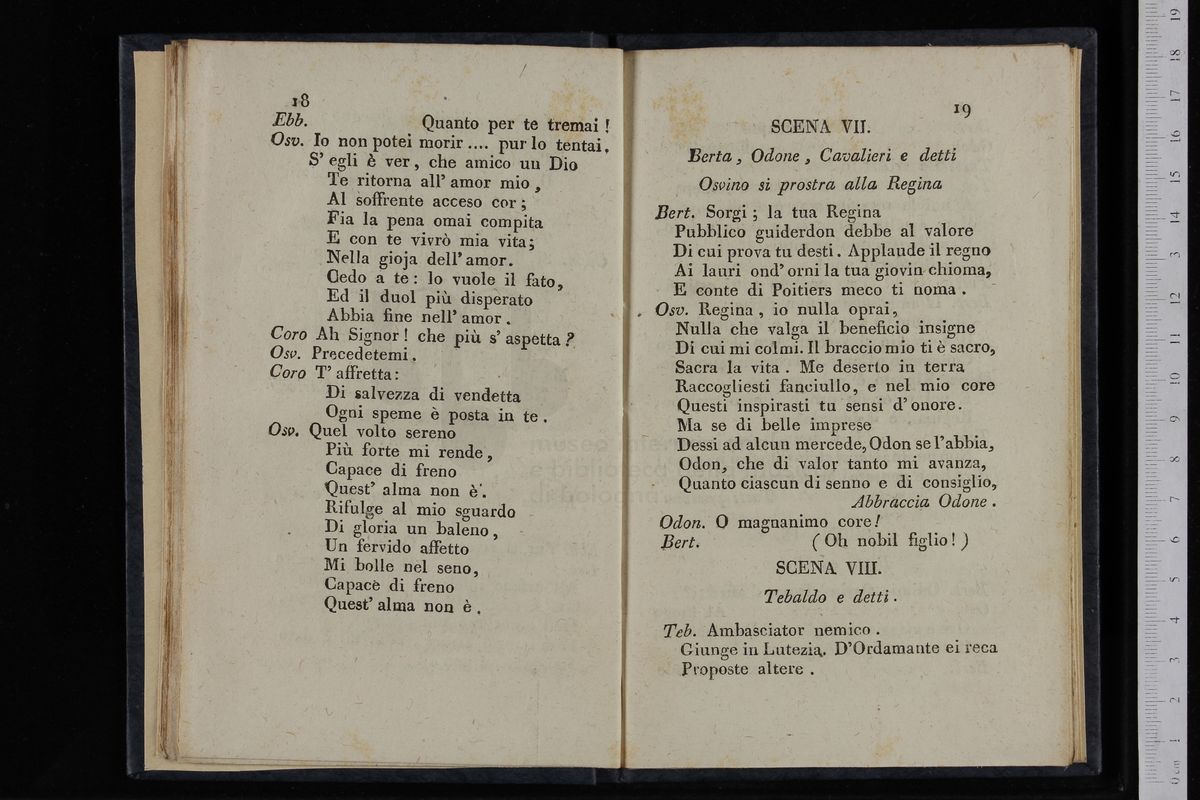 18
Ebb. Quanto per te tremai !
Osv. Io non potei morir .... pur lo tentai.
S' egli è ver, che amico un Dio
Te ritorna all' amor mio,
Al soffrente acceso cor ;
Fia la pena omai compita
E con te vivrò mia vita;
Nella gioja dell' amor.
Cedo a te: lo vuole il fato,
Ed il duol più disperato
Abbia fine nell' amor.
Coro Ah Signor! che più s' aspetta ?
Osv. Precedetemi.
Coro T' affretta:
Di salvezza di vendetta
Ogni speme è posta in te.
Osv. Quel volto sereno
Più forte mi rende,
Capace di freno
Quest' alma non è.
Rifulge al mio sguardo
Di gloria un baleno,
Un fervido affetto
Mi bolle nel seno,
Capace di freno
Quest' alma non è.
19
SCENA VII.
Berta, Odone, Cavalieri e detti
Osvino si prostra alla Regina
Bert. Sorgi ; la tua Regina
Pubblico guiderdon debbe al valore
Di cui prova tu desti. Applaude il regno
Ai lauri ond' orni la tua giovin chioma,
E conte di Poitiers meco ti noma.
Osv. Regina, io nulla oprai,
Nulla che valga il beneficio insigne
Di cui mi colmi. Il braccio mio ti è sacro,
Sacra la vita. Me deserto in terra
Raccogliesti fanciullo, e nel mio core
Questi inspirasti tu sensi d' onore.
Ma se di belle imprese
Dessi ad alcun mercede, Odon se l'abbia,
Odon, che di valor tanto mi avanza,
Quanto ciascun di senno e di consiglio,
Abbraccia Odone.
Odon. O magnanimo core!
Bert. (Oh nobil figlio!)
SCENA VIII.
Tebaldo e detti.
Teb. Ambasciator nemico.
Giunge in Lutezia. D'Ordamante ei reca
Proposte altere.